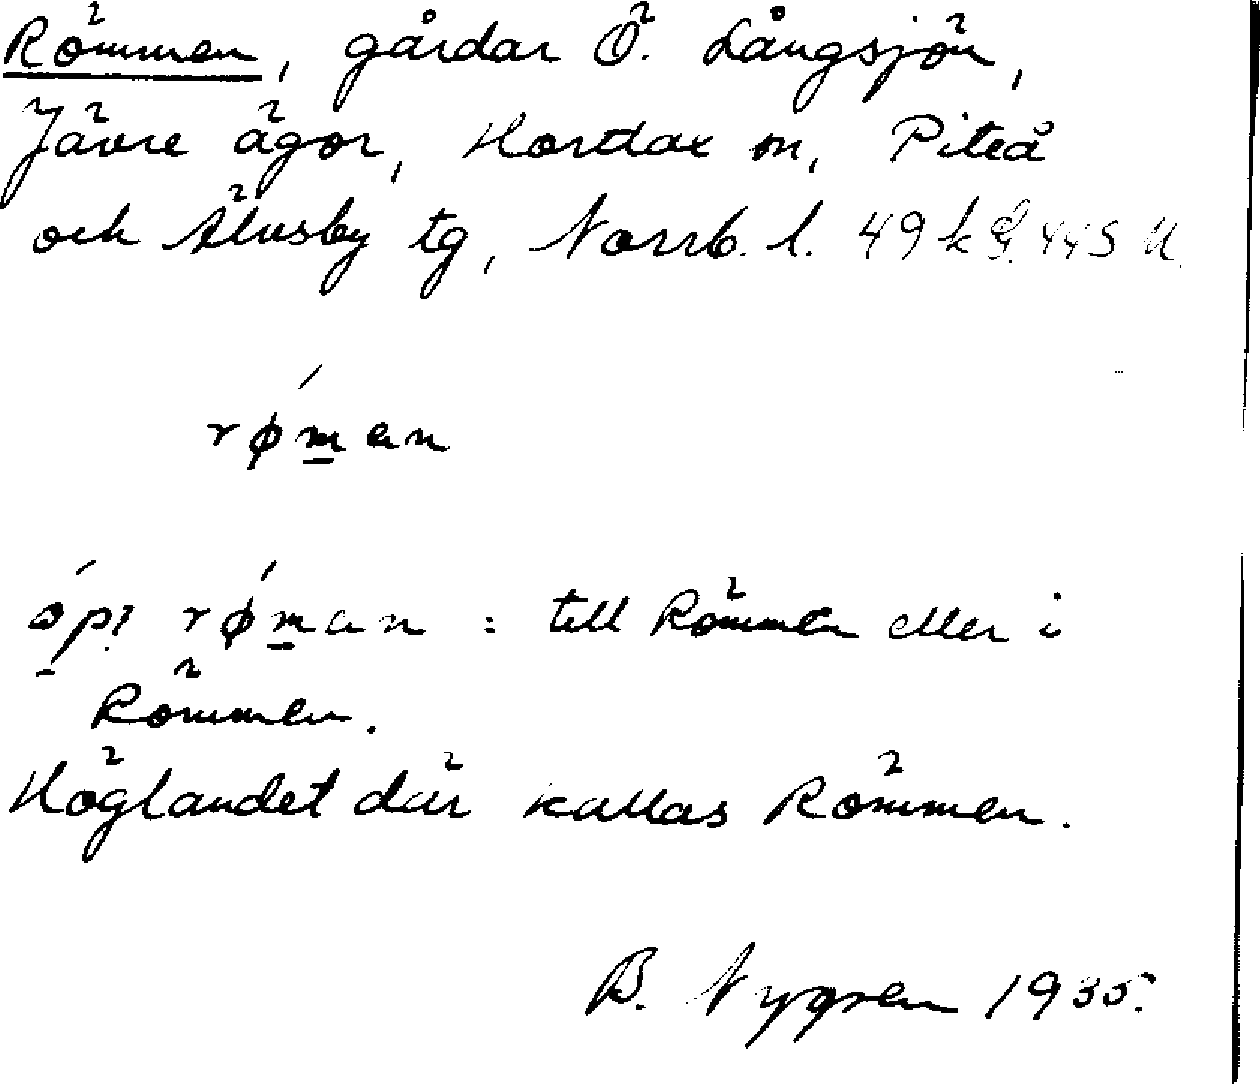 Römmen, gårdar Ö. Långsjön,
Jävre ägor, Hortlax sn, Piteå
och Älvsby tg, Norrb. l. 49 k
róm̲an
óp̲i róm̲an : till Römmen eller i
Römmen.
Höglandet där kallas Römmen.
B. Nygren 1935.